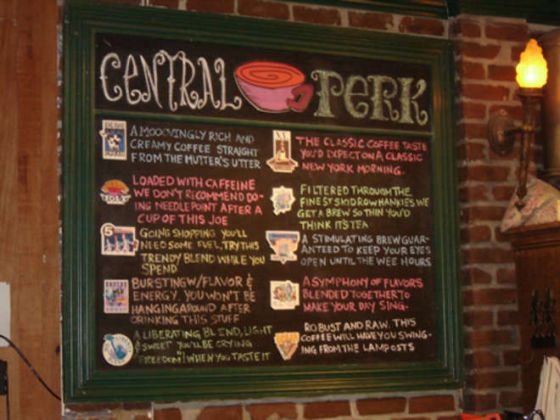 CENTRAL PERK
A MOOOVINGLY RICH AND
CREAMY COFFEE STRAIGHT
FROM THE MUTTER'S UTTER
LOADED WITH CAFFEINE
WE DON'T RECOMMEND DO-
ING NEEDLEPOINT AFTER A
CUP OF THIS JOE
GOING SHOPPING YOU'LL
NEED SOME FUEL, TRY THIS
TRENDY BLEND WHILE YOU
SPEND
BURSTING W/ FLAVOR &
ENERGY. YOU WON'T BE
HANGING AROUND AFTER
DRINKING THIS STUFF
A LIBERATING BLEND, LIGHT
& SWEET YOU'LL BE CRYING
"FREEDOM"! WHEN YOU TASTE IT
THE CLASSIC COFFEE TASTE
YOU'D EXPECT ON A CLASSIC
NEW YORK MORNING.
FILTERED THROUGH THE
FINEST SKIDROW HANKIES WE
GET A BREW SO THIN YOU'D
THINK IT'S TEA
A STIMULATING BREW GUAR-
ANTEED TO KEEP YOUR EYES
OPEN UNTIL THE WEE HOURS
A SYMPHONY OF FLAVORS
BLENDED TOGETHER TO
MAKE YOUR DAY SING.
ROBUST AND RAW. THIS
COFFEE WILL HAVE YOU SWING-
ING FROM THE LAMPOSTS